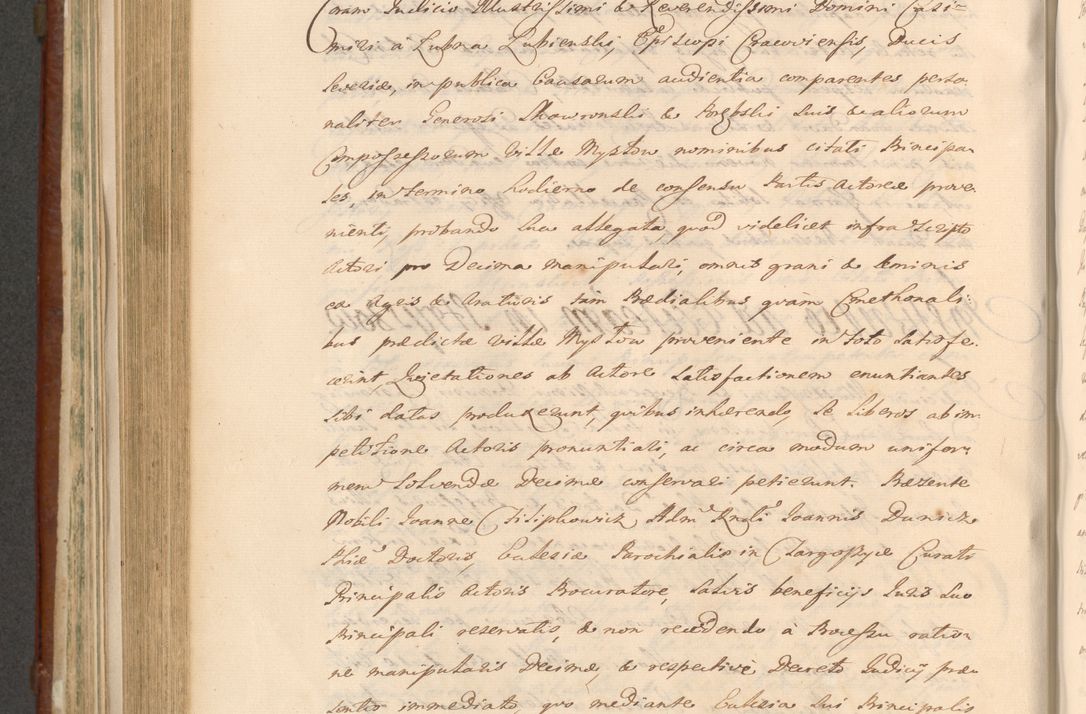 Coram Judicio Illustrissimi & Reverendissimi Domini Casi-
miri à Lubna Lubienski, Episcopi Cracoviensis, Ducis
Severiæ, in publica Causarum audientia comparentes perso
naliter Generosi Skawronski & suis & aliorum
Compossessorum Villæ Mystow nominibus citati Principa
les, in termino hodierno de consensu Partis Actoreæ prove
nienti, probando sua allegata quod videlicet infra scripto
Actori pro Decima manipulari, omnis grani & seminis
ex Agris & Araturis tam Prædialibus quàm Cmethonali-
bus prædictæ villæ Mystow proveniente in toto satisfe-
cerint, Quietationes ab Actore satisfactionem enuntiantes
sibi datas produxerunt, quibus inhærendo, se liberos ab im-
petitione Actoris pronuntiari, ac circa modum unifor-
mem solvendæ Decimæ conservari petierunt. Præsente
Nobili Joanne Adm Rndi Joannis Danicz
Phiæ Doctoris, Ecclesiæ Parochialis in Curati
Principalis Actoris Procuratore, salvis beneficijs Juris suo
Principali reservatis, & non recedendo à Processu ratio-
ne manipularis Decimæ, & respective Decreto Judicij præ
sentis immediato, quo mediante Ecclesia sui Principalis